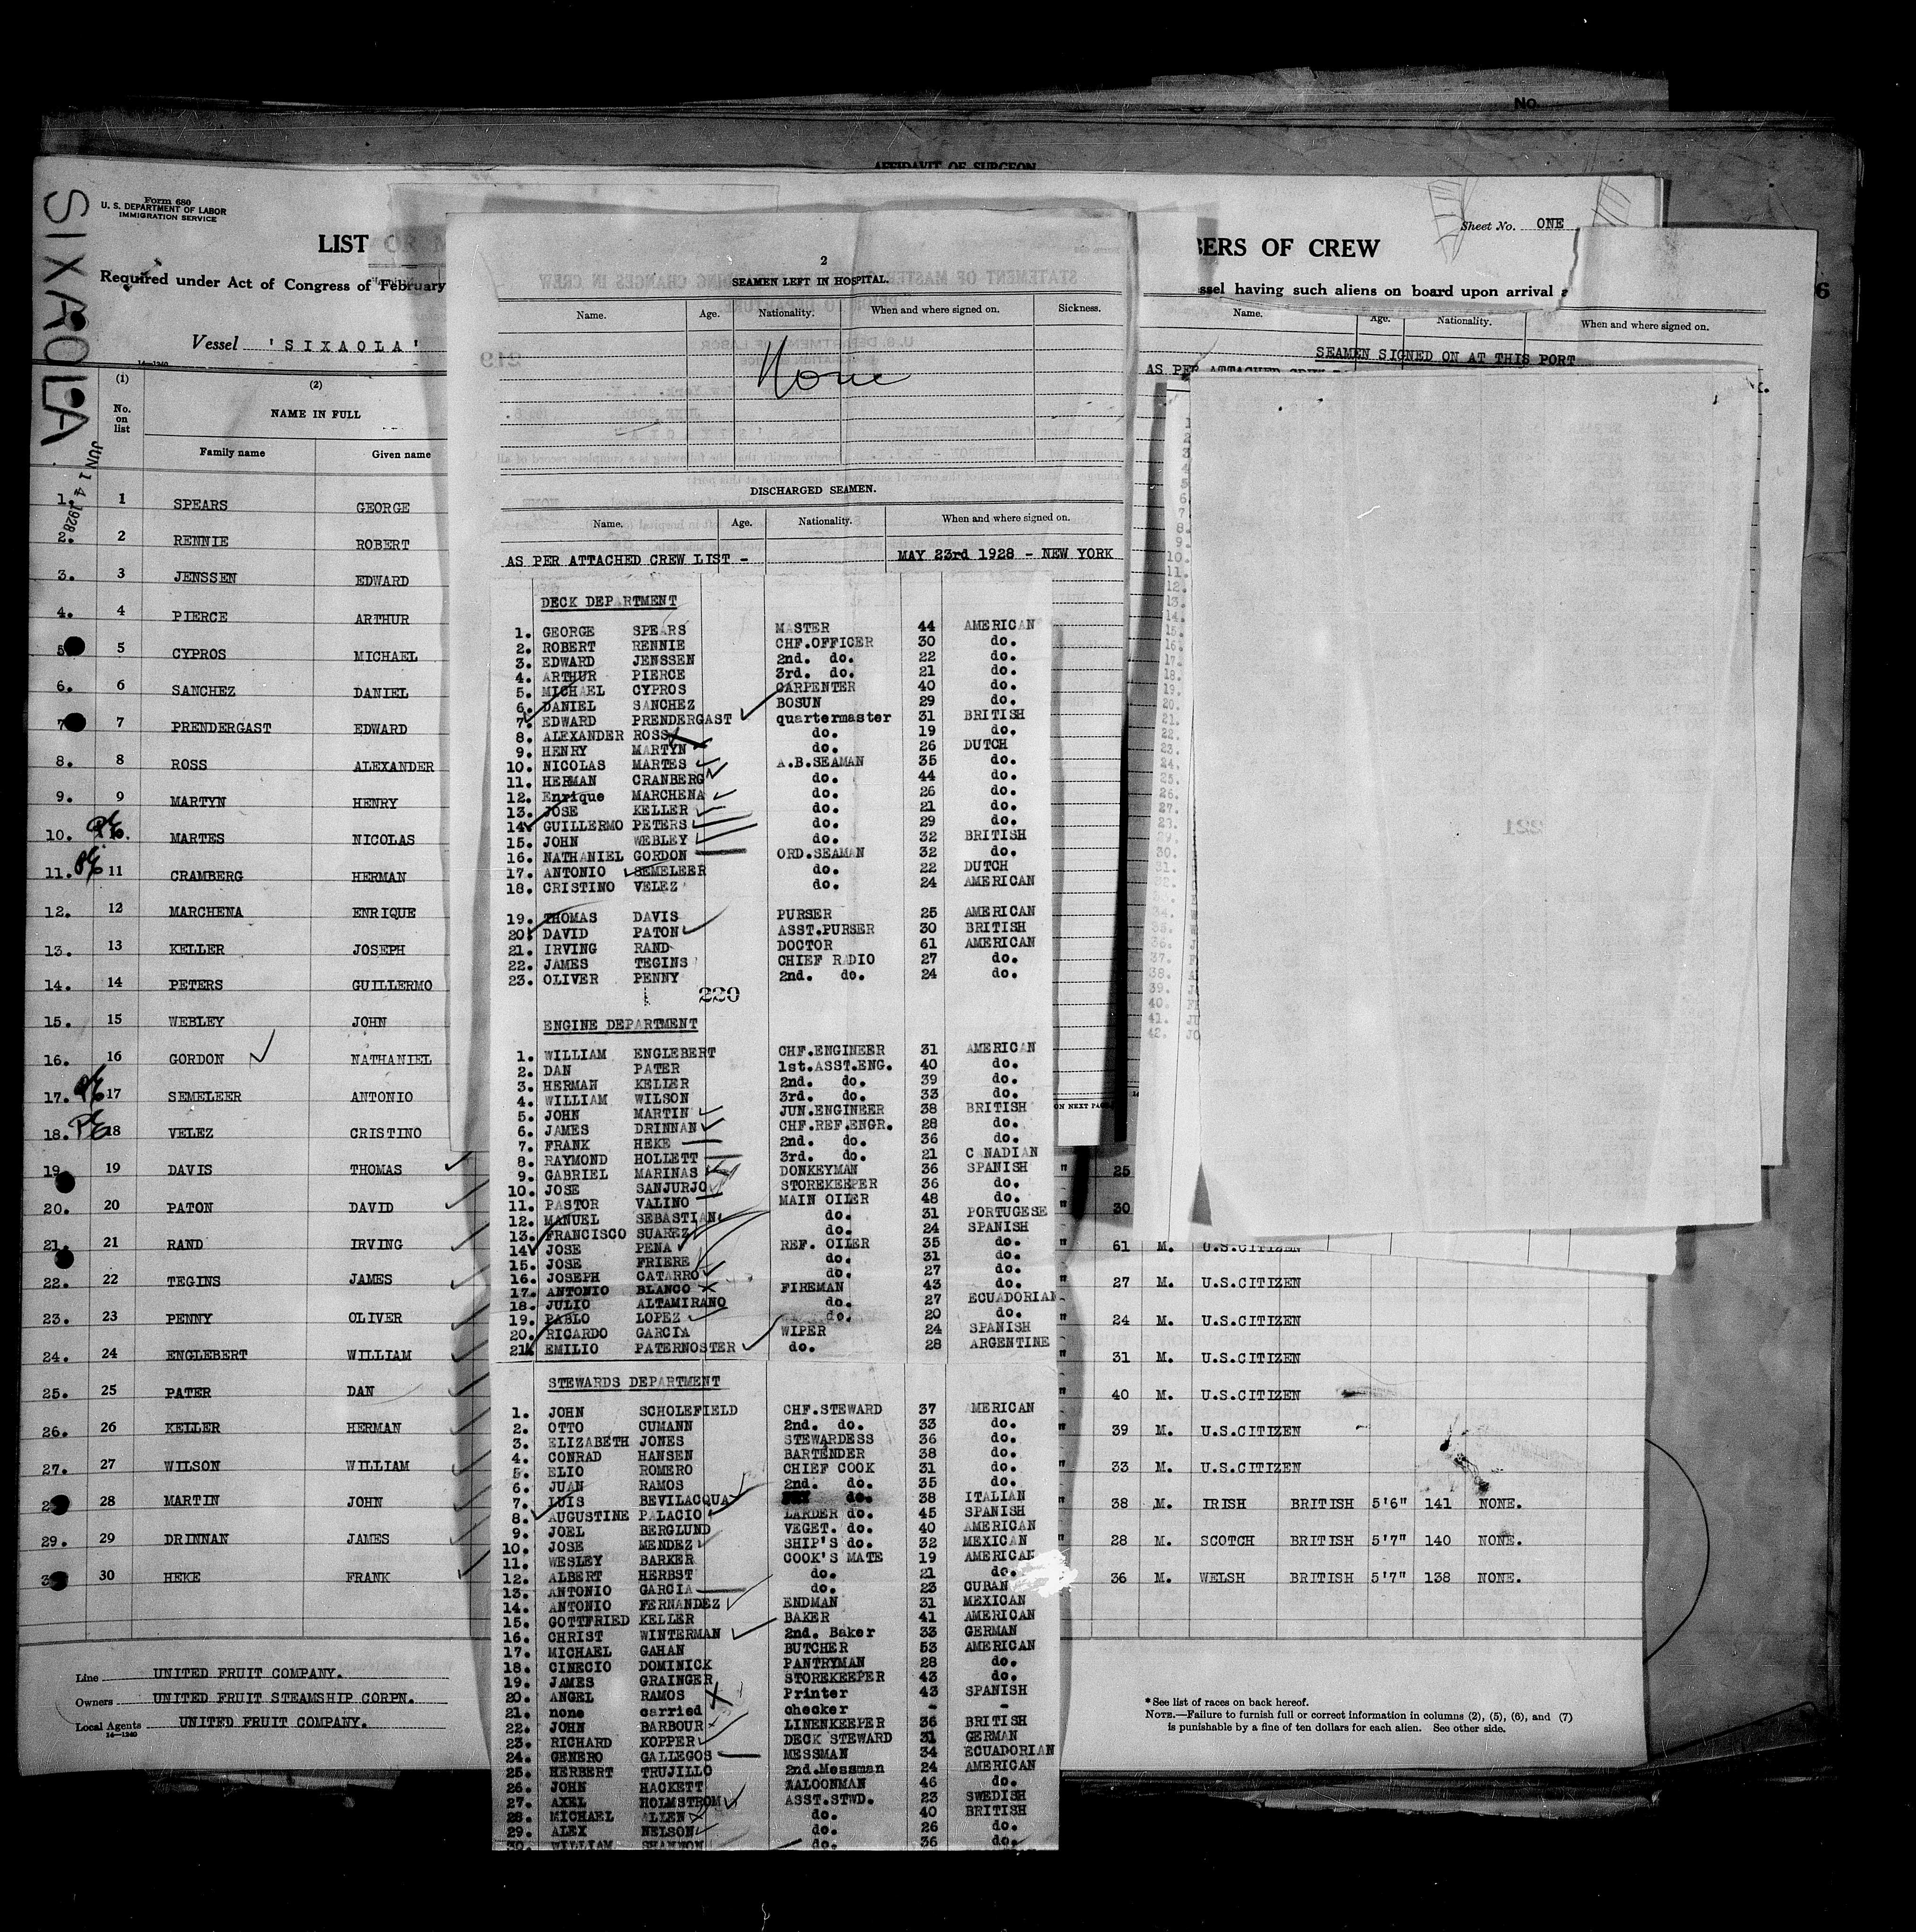 No.
AFFIDAVIT OF SURGEON
SIXAOLA
Form 680
U. S. DEPARTMENT OF LABOR
IMMIGRATION SERVICE
LIST
Required under Act of Congress of February
Vessel 'SIXAOLA'
14—1240
(1) (2)
No. on list NAME IN FULL
Family name Given name
JUN 14 1928
1. 1 SPEARS GEORGE
2. 2 RENNIE ROBERT
3. 3 JENSSEN EDWARD
4. 4 PIERCE ARTHUR
5 5 CYPROS MICHAEL
6. 6 SANCHEZ DANIEL
7 7 PRENDERGAST EDWARD
8. 8 ROSS ALEXANDER
9. 9 MARTYN HENRY
10. MARTES NICOLAS
11. 11 CRAMBERG HERMAN
12. 12 MARCHENA ENRIQUE
13. 13 KELLER JOSEPH
14. 14 PETERS GUILLERMO
15. 15 WEBLEY JOHN
16. 16 GORDON NATHANIEL
17. 17 SEMELEER ANTONIO
18. 18 VELEZ CRISTINO
19. 19 DAVIS THOMAS
20. 20 PATON DAVID
21. 21 RAND IRVING
22. 22 TEGINS JAMES
23. 23 PENNY OLIVER
24. 24 ENGLEBERT WILLIAM
25. 25 PATER DAN
26. 26 KELLER HERMAN
27. 27 WILSON WILLIAM
28 MARTIN JOHN
29. 29 DRINNAN JAMES
30 HEKE FRANK
Line UNITED FRUIT COMPANY.
Owners UNITED FRUIT STEAMSHIP CORPN.
Local Agents UNITED FRUIT COMPANY.
14—1240
2
SEAMEN LEFT IN HOSPITAL.
Name. Age. Nationality. When and where signed on. Sickness.
None
DISCHARGED SEAMEN.
Name. Age. Nationality. When and where signed on.
AS PER ATTACHED CREW LIST - MAY 23rd 1928 - NEW YORK
DECK DEPARTMENT
1. GEORGE SPEARS MASTER 44 AMERICAN
2. ROBERT RENNIE CHF.OFFICER 30 do.
3. EDWARD JENSSEN 2nd. do. 22 do.
4. ARTHUR PIERCE 3rd. do. 21 do.
5. MICHAEL CYPROS CARPENTER 40 do.
6. DANIEL SANCHEZ BOSUN 29 do.
7. EDWARD PRENDERGAST quartermaster 31 BRITISH
8. ALEXANDER ROSS do. 19 do.
9. HENRY MARTYN do. 26 DUTCH
10. NICOLAS MARTES A.B.SEAMAN 35 do.
11. HERMAN CRANBERG do. 44 do.
12. Enrique MARCHENA do. 26 do.
13. JOSE KELLER do. 21 do.
14. GUILLERMO PETERS do. 29 do.
15. JOHN WEBLEY do. 32 BRITISH
16. NATHANIEL GORDON ORD.SEAMAN 32 do.
17. ANTONIO SEMELEER do. 22 DUTCH
18. CRISTINO VELEZ do. 24 AMERICAN
19. THOMAS DAVIS PURSER 25 AMERICAN
20. DAVID PATON ASST.PURSER 30 BRITISH
21. IRVING RAND DOCTOR 61 AMERICAN
22. JAMES TEGINS CHIEF RADIO 27 do.
23. OLIVER PENNY 2nd. do. 24 do.
220
ENGINE DEPARTMENT
1. WILLIAM ENGLEBERT CHF.ENGINEER 31 AMERICAN
2. DAN PATER 1st.ASST.ENG. 40 do.
3. HERMAN KELLER 2nd. do. 39 do.
4. WILLIAM WILSON 3rd. do. 33 do.
5. JOHN MARTIN JUN.ENGINEER 38 BRITISH
6. JAMES DRINNAN CHF.REF.ENGR. 28 do.
7. FRANK HEKE 2nd. do. 36 do.
8. RAYMOND HOLLETT 3rd. do. 21 CANADIAN
9. GABRIEL MARINAS DONKEYMAN 36 SPANISH
10. JOSE SANJURJO STOREKEEPER 36 do.
11. PASTOR VALINO MAIN OILER 48 do.
12. MANUEL SEBASTIAN do. 31 PORTUGESE
13. FRANCISCO SUAREZ do. 24 SPANISH
14. JOSE PENA REF. OILER 35 do.
15. JOSE FRIERE do. 31 do.
16. JOSEPH CATARRO do. 27 do.
17. ANTONIO BLANCO FIREMAN 43 do.
18. JULIO ALTAMIRANO do. 27 ECUADORIAN
19. PABLO LOPEZ do. 20 do.
20. RICARDO GARCIA WIPER 24 SPANISH
21. EMILIO PATERNOSTER do. 28 ARGENTINE
STEWARDS DEPARTMENT
1. JOHN SCHOLEFIELD CHF.STEWARD 37 AMERICAN
2. OTTO CUMANN 2nd. do. 33 do.
3. ELIZABETH JONES STEWARDESS 36 do.
4. CONRAD HANSEN BARTENDER 38 do.
5. ELIO ROMERO CHIEF COOK 31 do.
6. JUAN RAMOS 2nd. do. 35 do.
7. LUIS BEVILACQUA do. 38 ITALIAN
8. AUGUSTINE PALACIO LARDER do. 45 SPANISH
9. JOEL BERGLUND VEGET. do. 40 AMERICAN
10. JOSE MENDEZ SHIP'S do. 32 MEXICAN
11. WESLEY BARKER COOK'S MATE 19 AMERICAN
12. ALBERT HERBST do. 21 do.
13. ANTONIO GARCIA do. 23 CUBAN
14. ANTONIO FERNANDEZ ENDMAN 31 MEXICAN
15. GOTTFRIED KELLER BAKER 41 AMERICAN
16. CHRIST WINTERMAN 2nd. Baker 33 GERMAN
17. MICHAEL GAHAN BUTCHER 53 AMERICAN
18. CINECIO DOMINICK PANTRYMAN 28 do.
19. JAMES GRAINGER STOREKEEPER 43 do.
20. ANGEL RAMOS Printer 43 SPANISH
21. none carried checker - -
22. JOHN BARBOUR LINENKEEPER 36 BRITISH
23. RICHARD KOPPER DECK STEWARD 31 GERMAN
24. GENERO GALLEGOS MESSMAN 34 ECUADORIAN
25. HERBERT TRUJILLO 2nd.Messman 24 AMERICAN
26. JOHN HACKETT AALOONMAN 46 do.
27. AXEL HOLMSTROM ASST.STWD. 23 SWEDISH
28. MICHAEL ALLEN do. 40 BRITISH
29. ALEX NELSON do. 26 do.
30. WILLIAM SHANNON do. 36 do.
Sheet No. ONE
BERS OF CREW
ssel having such aliens on board upon arrival a
6
Name. Age. Nationality. When and where signed on.
SEAMEN SIGNED ON AT THIS PORT
AS PER ATTACHED CREW
ON NEXT PAGE
" 25
" 30
" 61 M. U.S.CITIZEN
" 27 M. U.S.CITIZEN
" 24 M. U.S.CITIZEN
" 31 M. U.S.CITIZEN
" 40 M. U.S.CITIZEN
" 39 M. U.S.CITIZEN
" 33 M. U.S.CITIZEN
" 38 M. IRISH BRITISH 5'6" 141 NONE.
" 28 M. SCOTCH BRITISH 5'7" 140 NONE.
" 36 M. WELSH BRITISH 5'7" 138 NONE.
*See list of races on back hereof.
NOTE.—Failure to furnish full or correct information in columns (2), (5), (6), and (7)
is punishable by a fine of ten dollars for each alien. See other side.